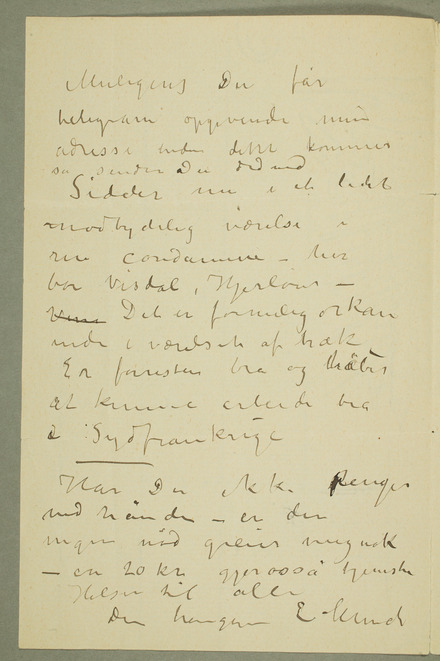 Muligens Du får
telegram opgivende min
adresse inden dette kommer
så sender Du did ned
Sidder nu i et lidet
modbydelig værelse i
rue Condamine – her
bor Visdal, Hjerlow –
Det er formelig orkan
inde i værelset af træk
Er forresten bra og håber
at kunne arbeide bra
i Sydfrankrige
Har Du ikke penger
ved hånden – er der
ingen nød greier mig nok
– en 20 kr gjør også tjeneste
Hilsen til alle
Din hengivne E Munch